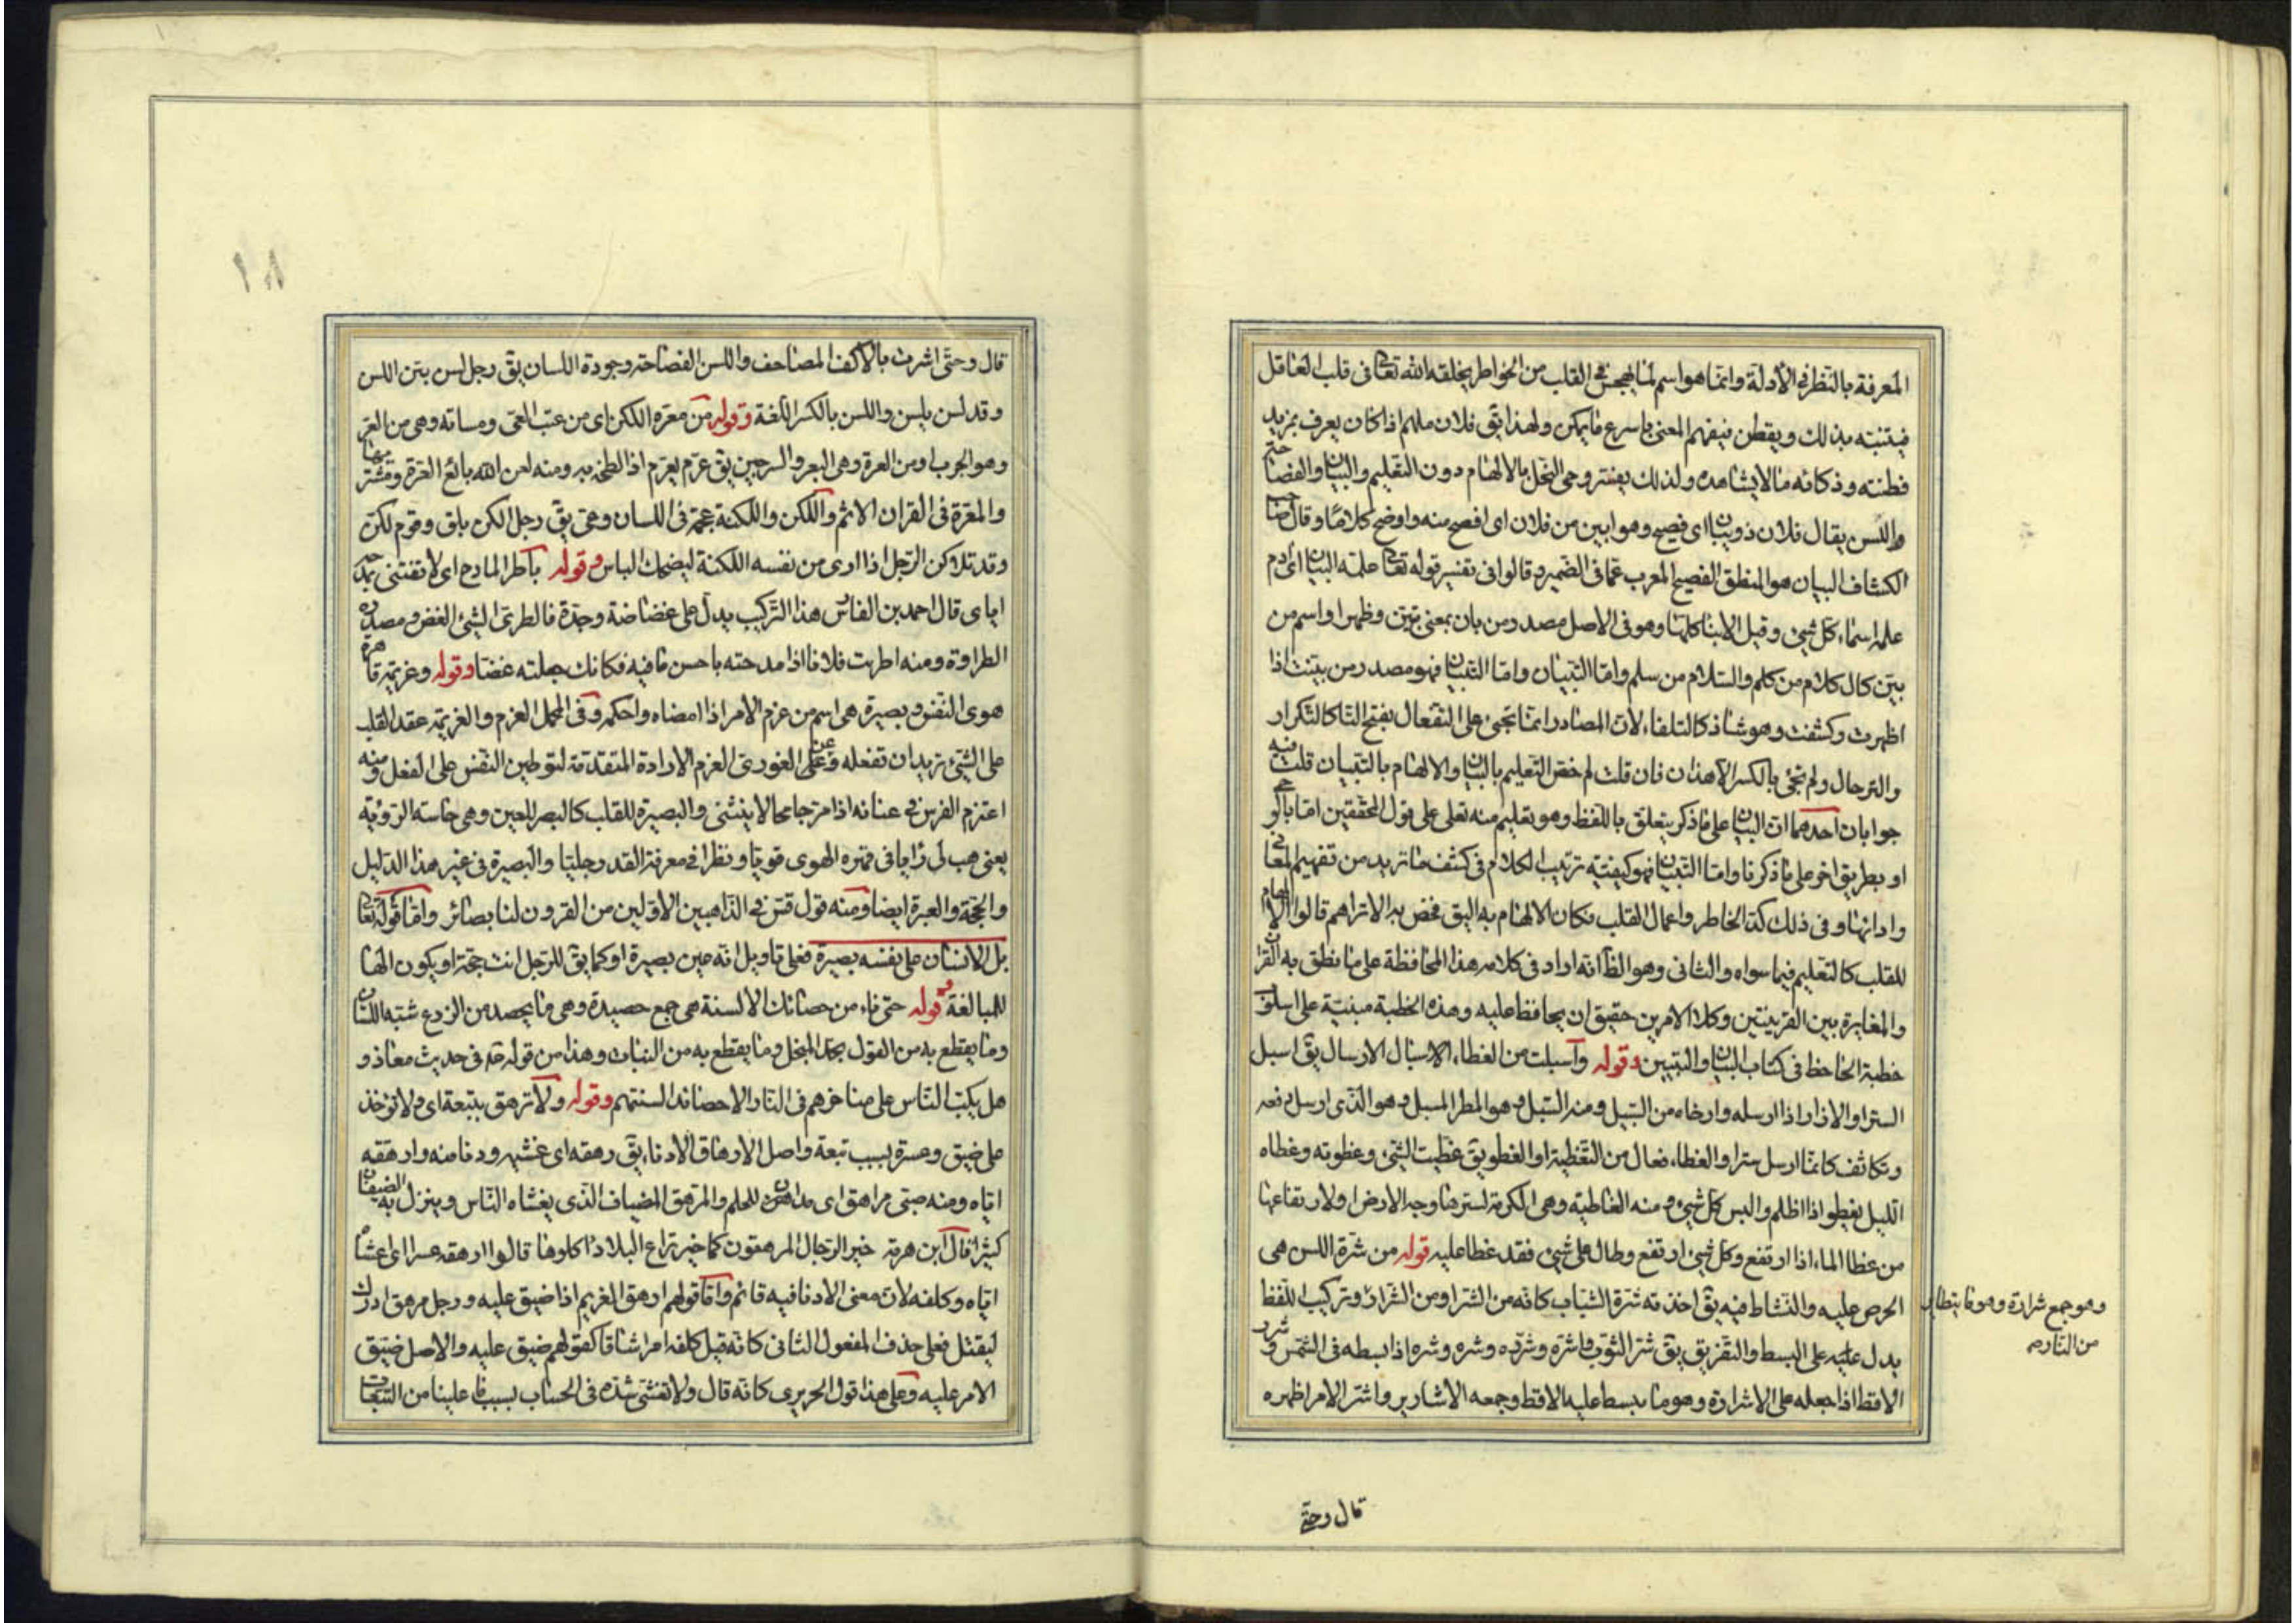 المعرفة بالنظر في الأدلة وانما هو اسم لما يهجس في القلب من الخواطر يخلقه الله تعا في قلب العاقل
فيتنبه بذلك ويفطن فيفهم المعنى باسرع ما يمكن ولهذا يق فلان ملهم اذا كان يعرف بمزيد
فطنته وذكائه ما لا يشاهده ولذلك يفسر وحى النحل بالالهام دون التعليم والبيان والفصا
واللسن يقال فلان ذو بيان اى فصيح وهو ابين من فلان اى افصح منه واوضح كلاما وقال
الكشاف البيان هو المنطق الفصيح المعرب عما فى الضمير وقالوا فى تفسير قوله تعا علمه البيان اى ادم
علمه اسماء كل شيئ وقيل الابنا كلها وهو فى الاصل مصدر من بان بمعنى تبين وظهر او اسم من
بين كال كلام من كلم والسلام من سلم واما التبيان واما التبيان فهو مصدر من بينت اذا
اظهرت وكشفت وهو شاذ كالتلقاء لان المصادر انما تجئ على التفعال بفتح التا كالتكرار
والترحال ولم تجئ بالكسر الا هذان فان قلت لم خص التعليم بالبيان والالهام بالتبيان قلت فيه
جوابان احدهما ان البيان على ما ذكر يتعلق باللفظ وهو بتعليم منه تعالى على قول المحققين اما بالوحى
او بطريق اخر على ما ذكرنا واما التبيان فهو كيفية ترتيب الكلام فى كشف ما تريد من تفهيم المعانى
وادائها وفى ذلك كد الخاطر واعمال القلب فكان الالهام به اليق فخص به الا تراهم قالوا الالهام
للقلب كالتعليم فيما سواه والثانى وهو الظ انه اراد فى كلامه هذا المحافظة على ما نطق به القران
والمغايرة بين القرينتين وكلا الامرين حقيق ان يحافظ عليه وهذه الخطبة مبنية على اسلوب
خطبة الجاحظ فى كتاب البيان والتبيين وقوله واسبلت من الغطاء الاسبال الارسال يق اسبل
الستر او الازار اذا ارسله وارخاه من السبل ومنه السبل وهو المطر المسبل وهو الذى ارسل دفعه
وتكاثف كانما ارسل ستر او الغطاء فعال من التغطية او الغطو يق غطيت الشئ وغطوته وغطاه
الليل يغطو اذا اظلم والبس كل شيئ ومنه الغاطية وهى الكرمة لسترها وجه الارض او لارتفاعها
من غطا الماء اذا ارتفع وكل شيئ ارتفع وطال على شيئ فقد غطا عليه قوله من شرة اللسن هى
الحرص عليه والنشاط فيه يق اخذته شرة الشباب كانه من الشر او من الشرار وتركيب اللفظ
يدل عليه على البسط والتفريق يق شر الثوب فاشره وشرره وشره وشره اذا بسطه فى الشمس وشرر
الاقط اذا جعله على الاشرارة وهو ما يبسط عليه الاقط وجمعه الاشارير واشر الامر اظهره
وهو جمع شرارة وهو ما يتطاير
من النار صه
قال وحتى
قال وحتى اشرت بالاكف المصاحف واللسن الفصاحة وجودة اللسان يق رجل لسن بين اللسن
وقد لسن يلسن واللسن بالكسر اللغة وقوله من معرة اللكن اى من عيب العى ومساته وهى من العر
وهو الجرب او من العرة وهى البعر والسرجين يق عرهم يعرهم اذا لطخهم به ومنه لعن الله بائع العرة ومشتريها
والمعرة فى القران الاثم واللكن واللكنة عجمة فى اللسان وعى يق رجل الكن بلق وقوم لكن
وقد تلاكن الرجل اذا ارى من نفسه اللكنة ليضحك الناس وقوله باطراء المادح اى لا تفتنى بمدحه
اياى قال احمد بن الفارس هذا التركيب يدل على غضاضة وجدة فالطرى الشئ الغض ومصدره
الطراوة ومنه اطريت فلانا اذا مدحته باحسن ما فيه فكانك جعلته غضا وقوله وعزيمة قاهرة
هوى النفس وبصيرة هى اسم من عزم الامر اذا امضاه واحكمه وفى المجمل العزم والعزيمة عقد القلب
على الشئ تريد ان تفعله وعن على الغورى العزم الارادة المتقدمة لتوطين النفس على الفعل ومنه
اعتزم الفرس فى عنانه اذا مر جامحا لا ينثنى والبصيرة للقلب كالبصر للعين وهى حاسة الرؤية
يعنى هب لى رايا فى قهره الهوى قويا ونظرا فى معرفة القدر جليا والبصيرة فى غير هذا الدليل
والحجة والعبرة ايضا ومنه قول قس فى الذاهبين الاولين من القرون لنا بصائر واما قوله تعا
بل الانسان على نفسه بصيرة فعلى تاويل انه عين بصيرة او كما يق للرجل انت حجة او يكون الها
للمبالغة وقوله حتى ناء من حصائد الالسنة هى جمع حصيدة وهى ما يحصد من الزرع شبه اللسان
وما يقطع به من القول بحد المنجل وما يقطع به من النبات وهذا من قوله عم فى حديث معاذ و
هل يكب الناس على مناخرهم فى النار الا حصائد السنتهم وقوله ولا ترهق بتبعة اى ولا تؤخذ
على ضيق وعسرة بسبب تبعة واصل الارهاق الادناء يق رهقه اى غشيه ودنا منه وارهقه
اياه ومنه صبى مراهق اى مدان للحلم والمرهق المضياف الذى يغشاه الناس وينزل به الضيفان
كثيرا قال ابن هرمة خير الرجال المرهقون كما خير تلاع البلاد اكلاوها قالوا ارهقه عسرا اى اغشاه
اياه وكلفه لان معنى الادنا فيه قائم واما قولهم ارهق الغريم اذا ضيق عليه ورجل مرهق ادرك
ليقتل فعلى حذف المفعول الثانى كانه قيل كلفه امرا شاقا كقولهم ضيق عليه والاصل ضيق
الامر عليه وعلى هذا قول الحريرى كانه قال ولا تغشى شدة فى الحساب بسبب ما علينا من التبعات